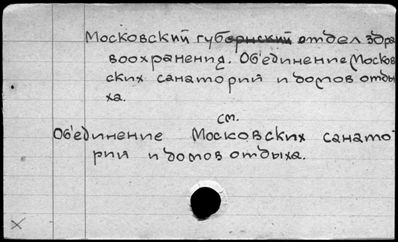 Московский губернский отдел здра
воохранения. Объединение Москов
ских санаторий и домов отды
ха.
см.
Объединение Московских санато
рий и домов отдыха.